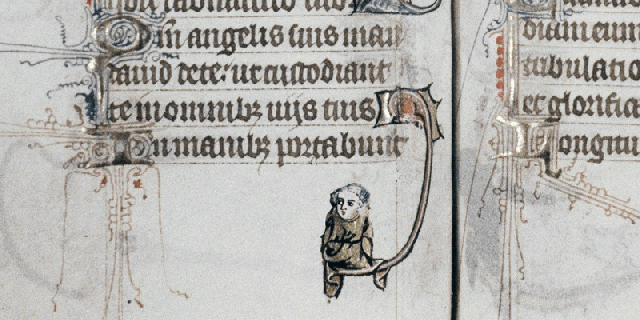 Qm angelis suis man
dauid dete: ut custodiant
te in omnibz uijs tuis
In manibz portabunt
diam eum
tribulatio
et glorifica
Longitu